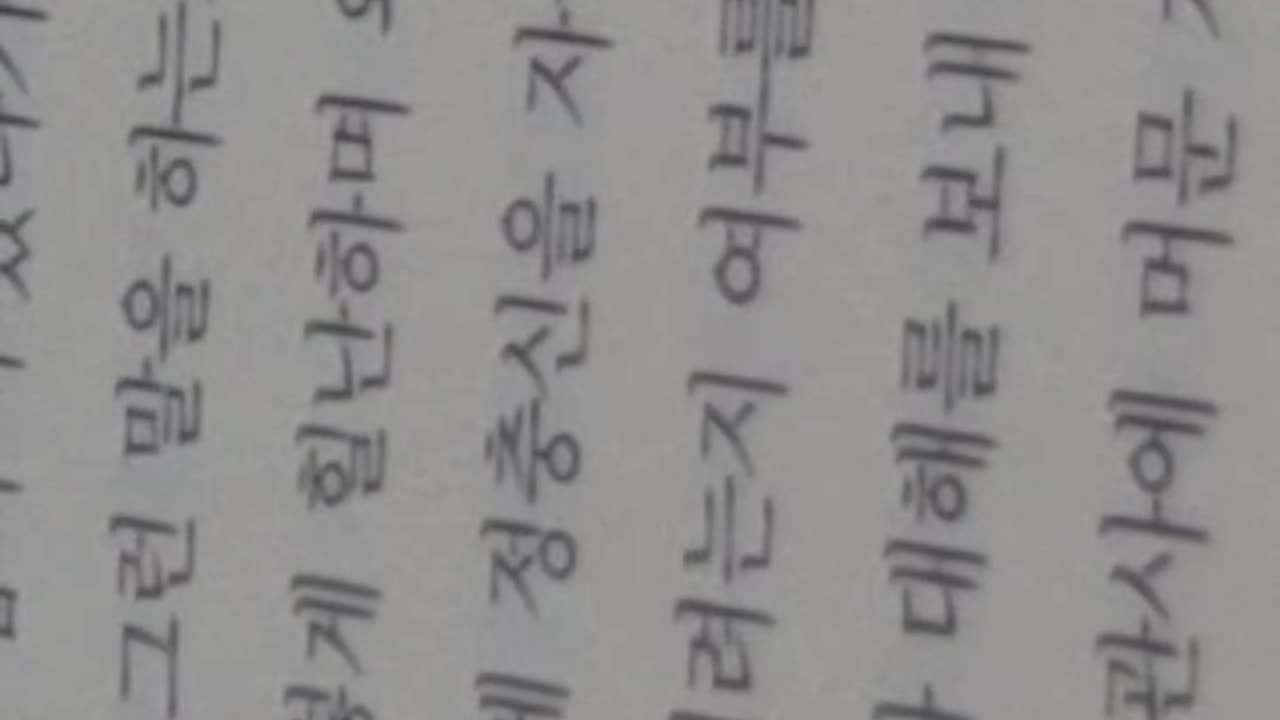 그런 말을 하는
하게 힐난하며
정충신을 자
려는지 여부를
대해를 보내
판사에 머문